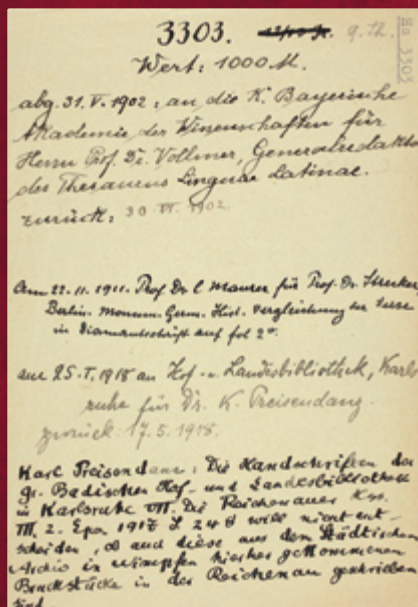 3303. 9. th.
Wert: 1000 M.
abg. 31. V. 1902: an die K. Bayerische
Akademie der Wissenschaften für
Herrn Prof. Dr. Vollmer, Generalredaktor
des Thesaurus Linguae Latinae.
zurück: 30. VI. 1902.
Am 22.11.1911. Prof Dr C Maurer für Prof. Dr. Strecker
Berlin. Monum. Germ. Hist. Vergleichung der Verse
in auf fol 2
am 25. I. 1918 an Hof- u. Landesbibliothek, Karls
ruhe für Dr. K. Preisendanz.
zurück: 17.5.1918.
Karl Preisendanz: Die Handschriften der
Gr. Badischen Hof- und Landesbibliothek
in Karlsruhe VII. Die Reichenauer Hss.
III. 2. 1917 S 248 will nicht ent-
scheiden, ob auch diese aus dem Städtischen
Archiv in Wimpfen hierher gekommenen
Bruchstücke in der Reichenau geschrieben
sind